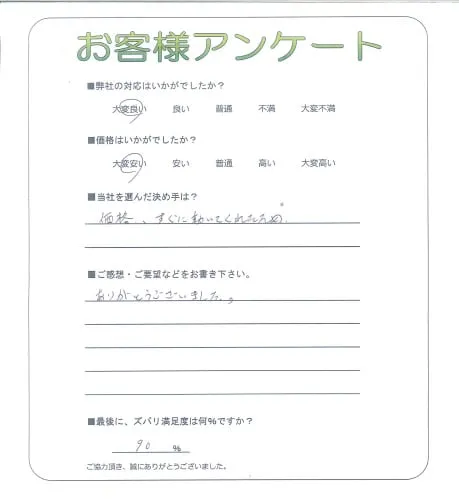 お客様アンケート
■弊社の対応はいかがでしたか？
大変良い 良い 普通 不満 大変不満
■価格はいかがでしたか？
大変安い 安い 普通 高い 大変高い
■当社を選んだ決め手は？
価格、すぐに動いてくれたため。
■ご感想・ご要望などをお書き下さい。
ありがとうございました。
■最後に、ズバリ満足度は何%ですか？
90 %
ご協力頂き、誠にありがとうございました。